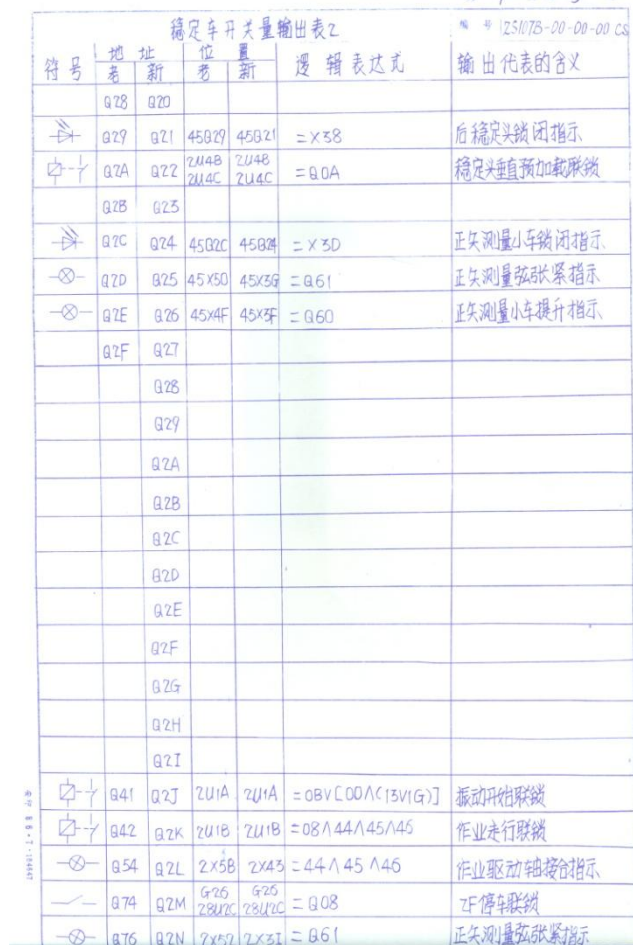 稳定车开关量输出表2
编号 ZS107B-00-00-00 CS
符号 地址 位置 逻辑表达式 输出代表的含义
老 新 老 新
Q28 Q20
Q29 Q21 45Q29 45Q21 =X38 后稳定头锁闭指示
Q2A Q22 2U4B 2U4C 2U4B 2U4C =Q0A 稳定头垂直预加载联锁
Q2B Q23
Q2C Q24 45Q2C 45Q24 =X3D 正矢测量小车锁闭指示
Q2D Q25 45X50 45X3G =Q61 正矢测量弦张紧指示
Q2E Q26 45X4F 45X3F =Q60 正矢测量小车提升指示
Q2F Q27
Q28
Q29
Q2A
Q2B
Q2C
Q2D
Q2E
Q2F
Q2G
Q2H
Q2I
Q41 Q2J 2U1A 2U1A =0BV[00Λ(13V1G)] 振动开始联锁
Q42 Q2K 2U1B 2U1B =08Λ44Λ45Λ46 作业走行联锁
Q54 Q2L 2X5B 2X43 =44Λ45Λ46 作业驱动轴接合指示
Q74 Q2M G26 28U2C G26 28U2C =Q08 ZF停车联锁
Q76 Q2N 2X52 2X3I =Q61 正矢测量弦张紧指示